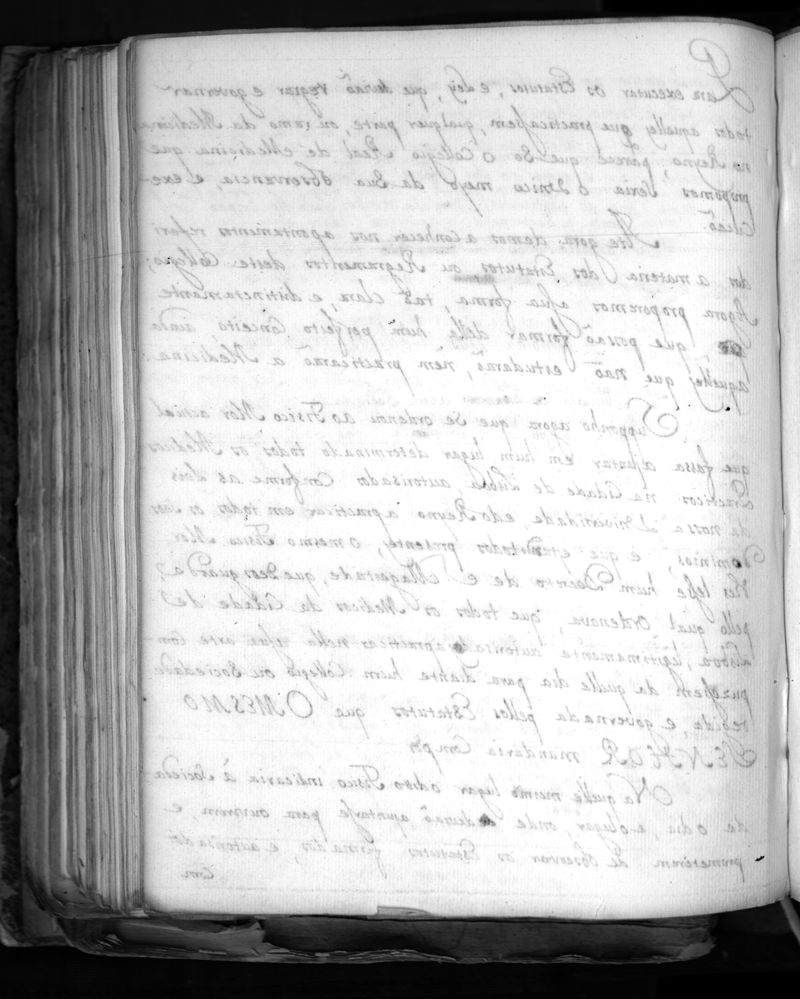 Para executar os Estatutos, e Ley, que deviaõ regrar e governar
todos aquelles que practicassem, qualquer parte, ou ramo da Medicina
no Reyno, parece que So o Collegio Real de Medicina que
propomos Seria o Unico meyo da Sua observancia, e exe-
cucaõ
Ate gora demos a conhecer nos apontamentos referi
dos a materia dos Estatutos ou Regramentos deste Collegio;
Agora proporemos a sua forma, taõ clara, e distinctamante
que possaõ formar delle hum perfeito Conceito ainda
aquelles que naõ estudaraõ, nem practicaraõ a Medicina.
Supponho agora que se ordenou ao Fisico Mor actual
que fassa ajuntar em hum lugar determinado todos os Medicos
Practicos na Cidade de Lisboa autorisados Conforme as Leis
da nossa Universidade, e do Reyno a practicar em todos os seos
Dominios, e que estando todos presentes, o mesmo Fisico Mor
lhes lesse hum Decreto de S. Magestade, que Deos guarde,
pello qual Ordenava, que todos os Medicos da Cidade de
Lisboa, legitimamente autorisados a practicar nella a sua arte com-
puzessem da quelle dia para diante hum Collegio ou Sociedade
regida, e governada pellos Estatutos que O MESMO
SENHOR mandaria Compor
Na quelle mesmo lugar o dito Fisico indicaria à Socieda-
de o dia, e o lugar, onde deviaõ ajuntarse para ouvirem, e
prometerem de observar os Estatutos firmados, e autorisados
Com